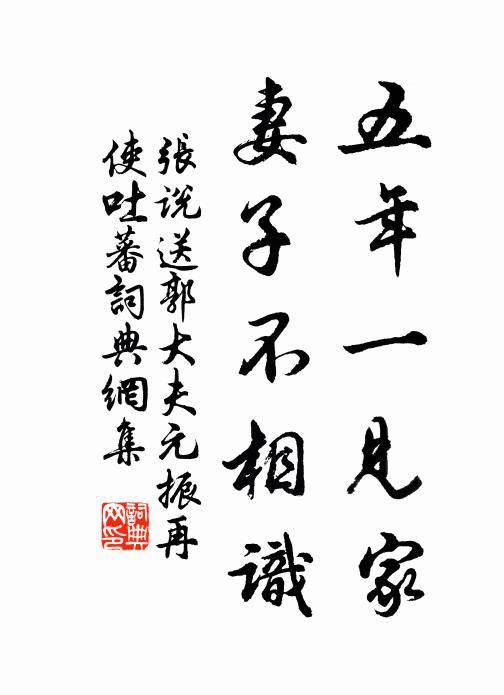 五年一見家
妻子不相識
張说送郭大夫元振再
使吐蕃詞典網集
詞典网印